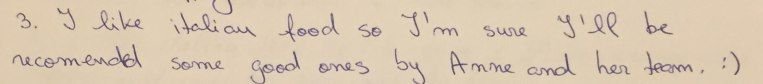 3. I like italian food so I'm sure I'll be
recomended some good ones by Anne and her team. :)